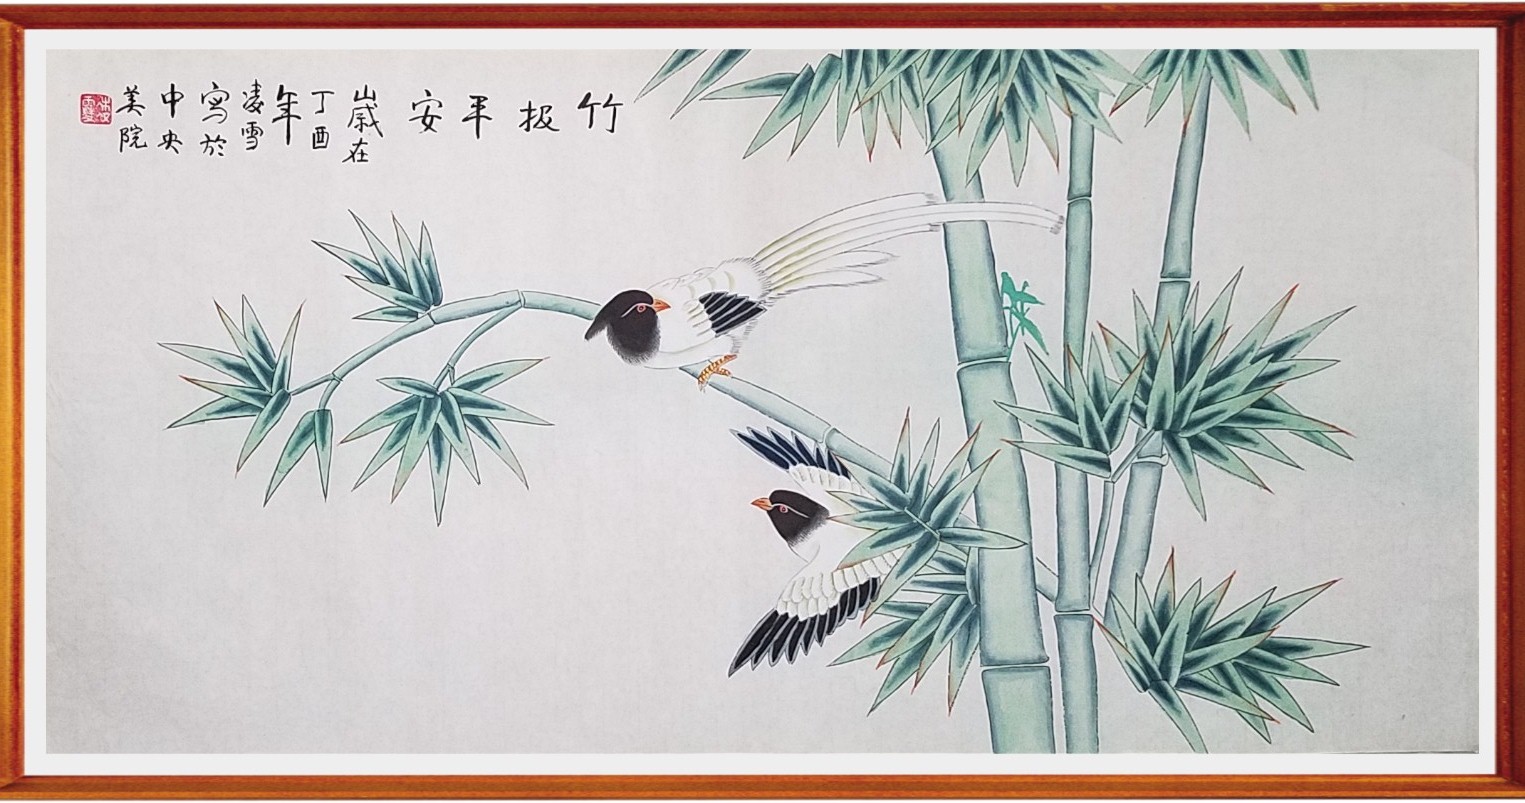 竹报平安
歲在
丁酉
年
凌雪
写於
中央
美院